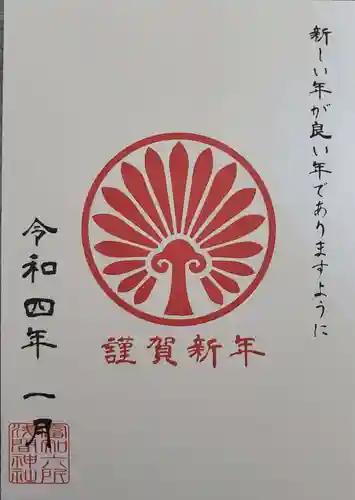 新しい年が良い年でありますように
謹賀新年
令和四年 一月
富知六所
浅間神社